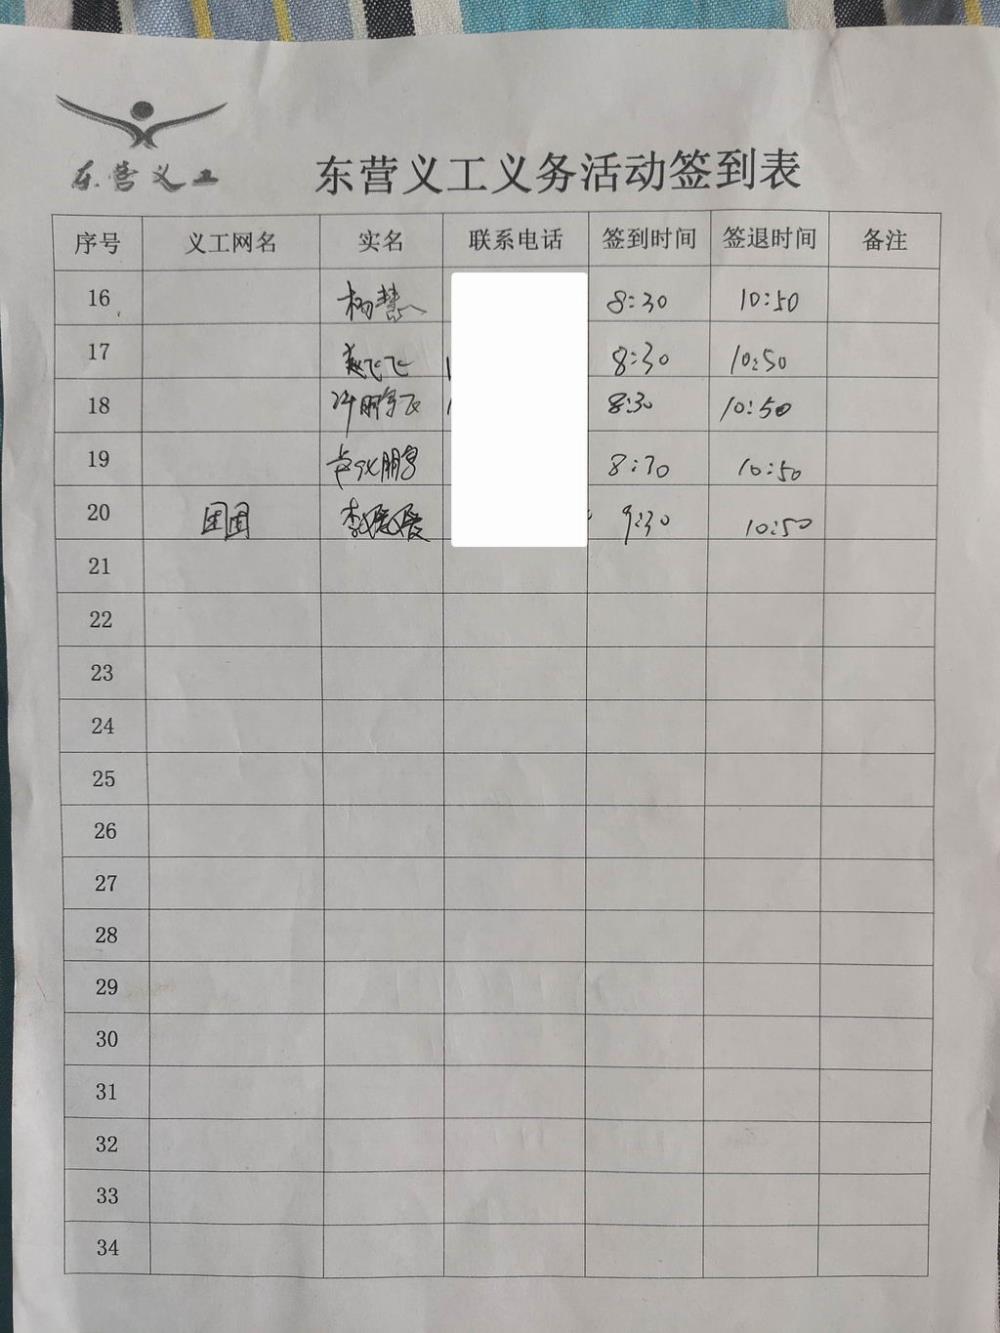 东营义工
东营义工义务活动签到表
序号 义工网名 实名 联系电话 签到时间 签退时间 备注
16 杨慧 8:30 10:50
17 赵飞飞 8:30 10:50
18 8:30 10:50
19 8:30 10:50
20 团团 李媛媛 9:30 10:50
21
22
23
24
25
26
27
28
29
30
31
32
33
34